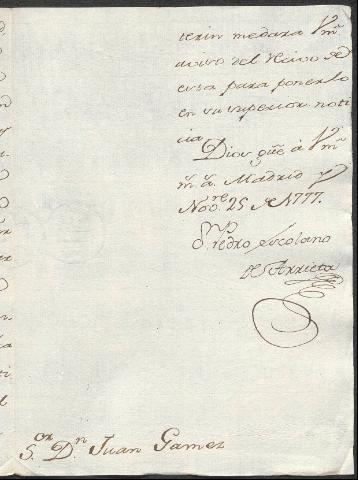 terin medara Vm.
aviso del Recivo de
esta para ponerlo
en su superior noti
cia.
Dios gũe â Vm.
m.s a.s Madrid y
Nov.re 25 de 1777.
D.n Pedro Escolano
de Arrieta
S.or D.n Juan Gamez